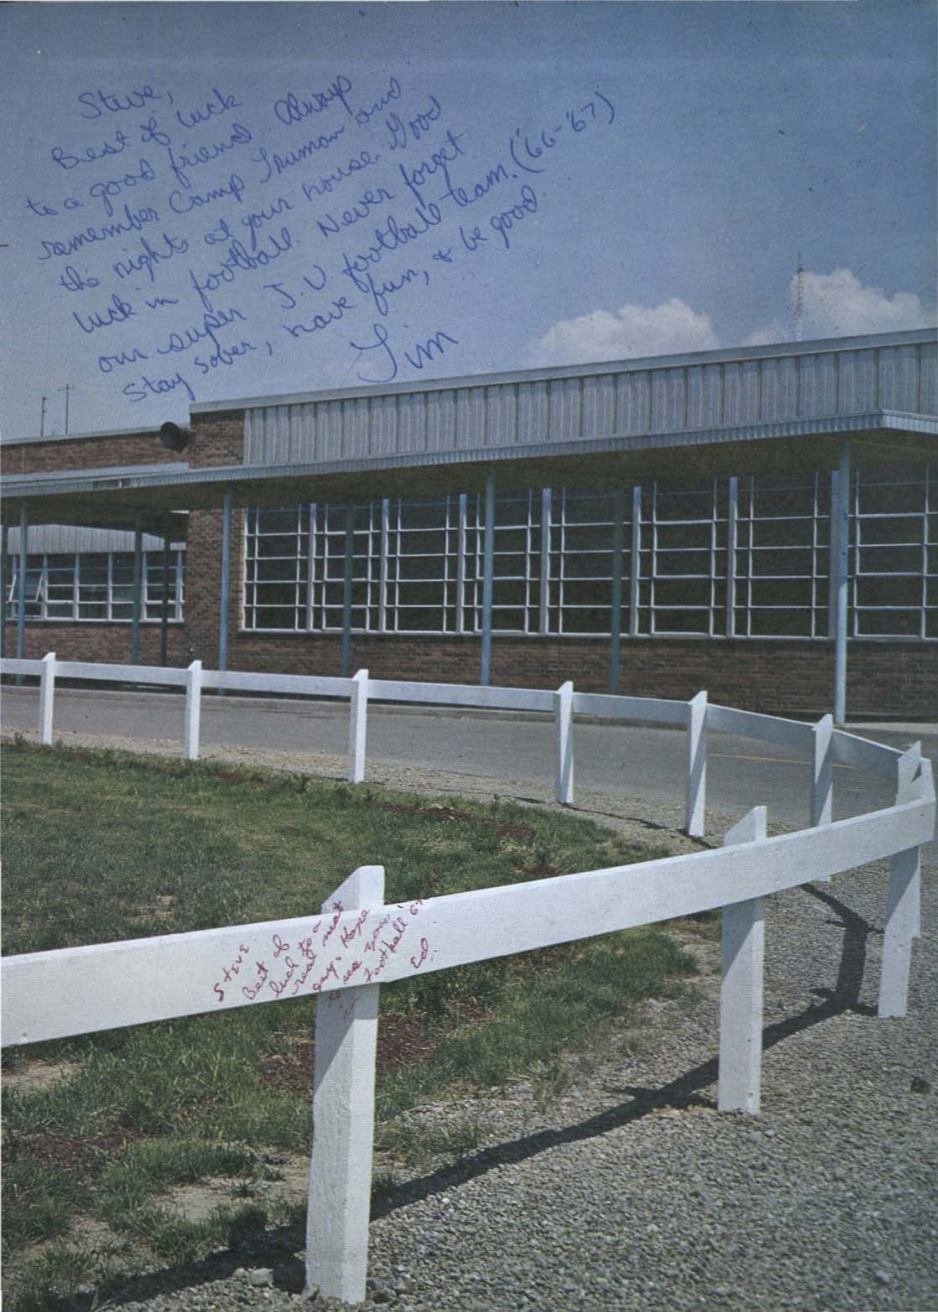 Steve,
Best of luck
to a good friend. Always
remember Camp Truman and
the nights at your house. Good
luck in football. Never forget
our super J.V football team. ('66-'67)
Stay sober, have fun, & be good.
Tim
STEVE
Best of
luck to a
real neat
guy. Hope
to see you
in football 67
Ed